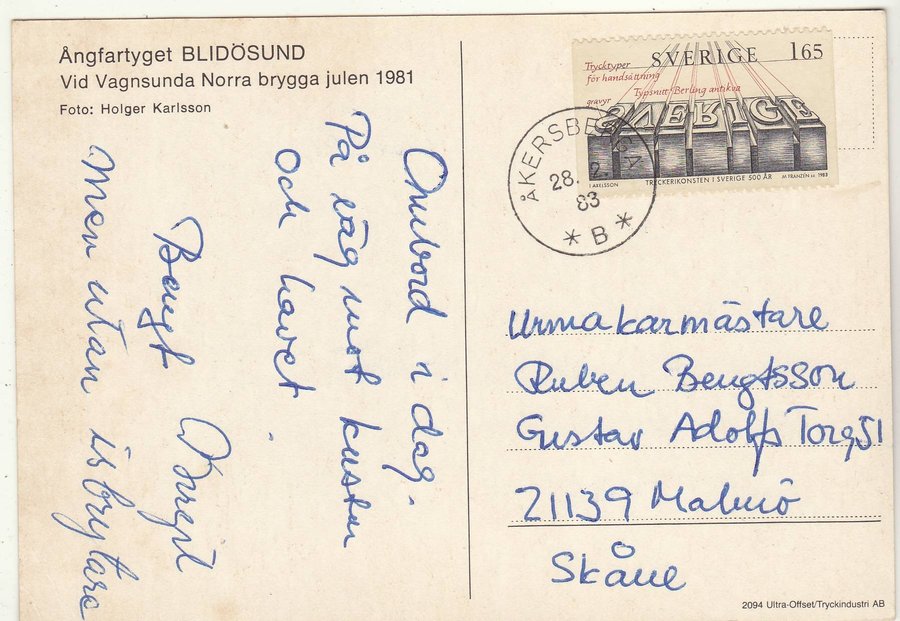 Ångfartyget BLIDÖSUND
Vid Vagnsunda Norra brygga julen 1981
Foto: Holger Karlsson
Ombord i dag.
På väg mot kusten
och havet.
Bengt Birgit
Men utan isbrytare
SVERIGE 165
Trycktyper
för handsättning
Typsnitt/Berling antikva
gravyr
SVERIGE
I AXELSSON TRYCKERIKONSTEN I SVERIGE 500 ÅR M FRANZÉN sc. 1983
ÅKERSBERGA
28. 2.
83
* B *
Urmakarmästare
Ruben Bengtsson
Gustav Adolfs Torg 51
21139 Malmö
Skåne
2094 Ultra-Offset/Tryckindustri AB